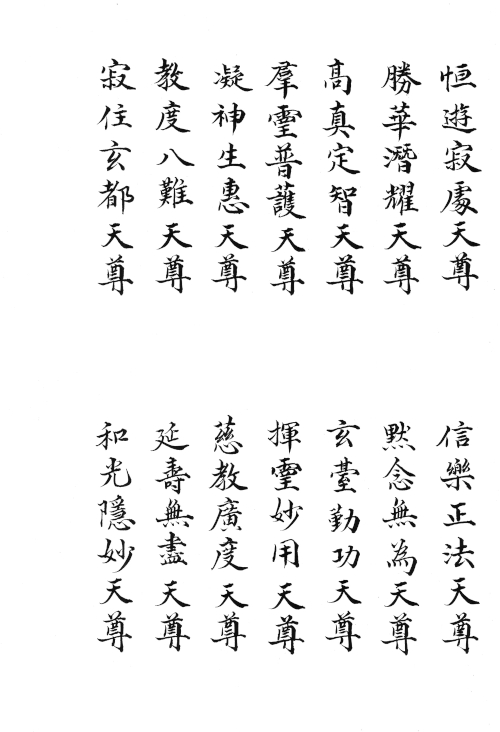 恒遊寂處天尊
勝華潛耀天尊
高真定智天尊
羣靈普護天尊
凝神生惠天尊
教度八難天尊
寂住玄都天尊
信樂正法天尊
黙念無為天尊
玄臺勤功天尊
揮靈妙用天尊
慈教廣度天尊
延壽無盡天尊
和光隱妙天尊